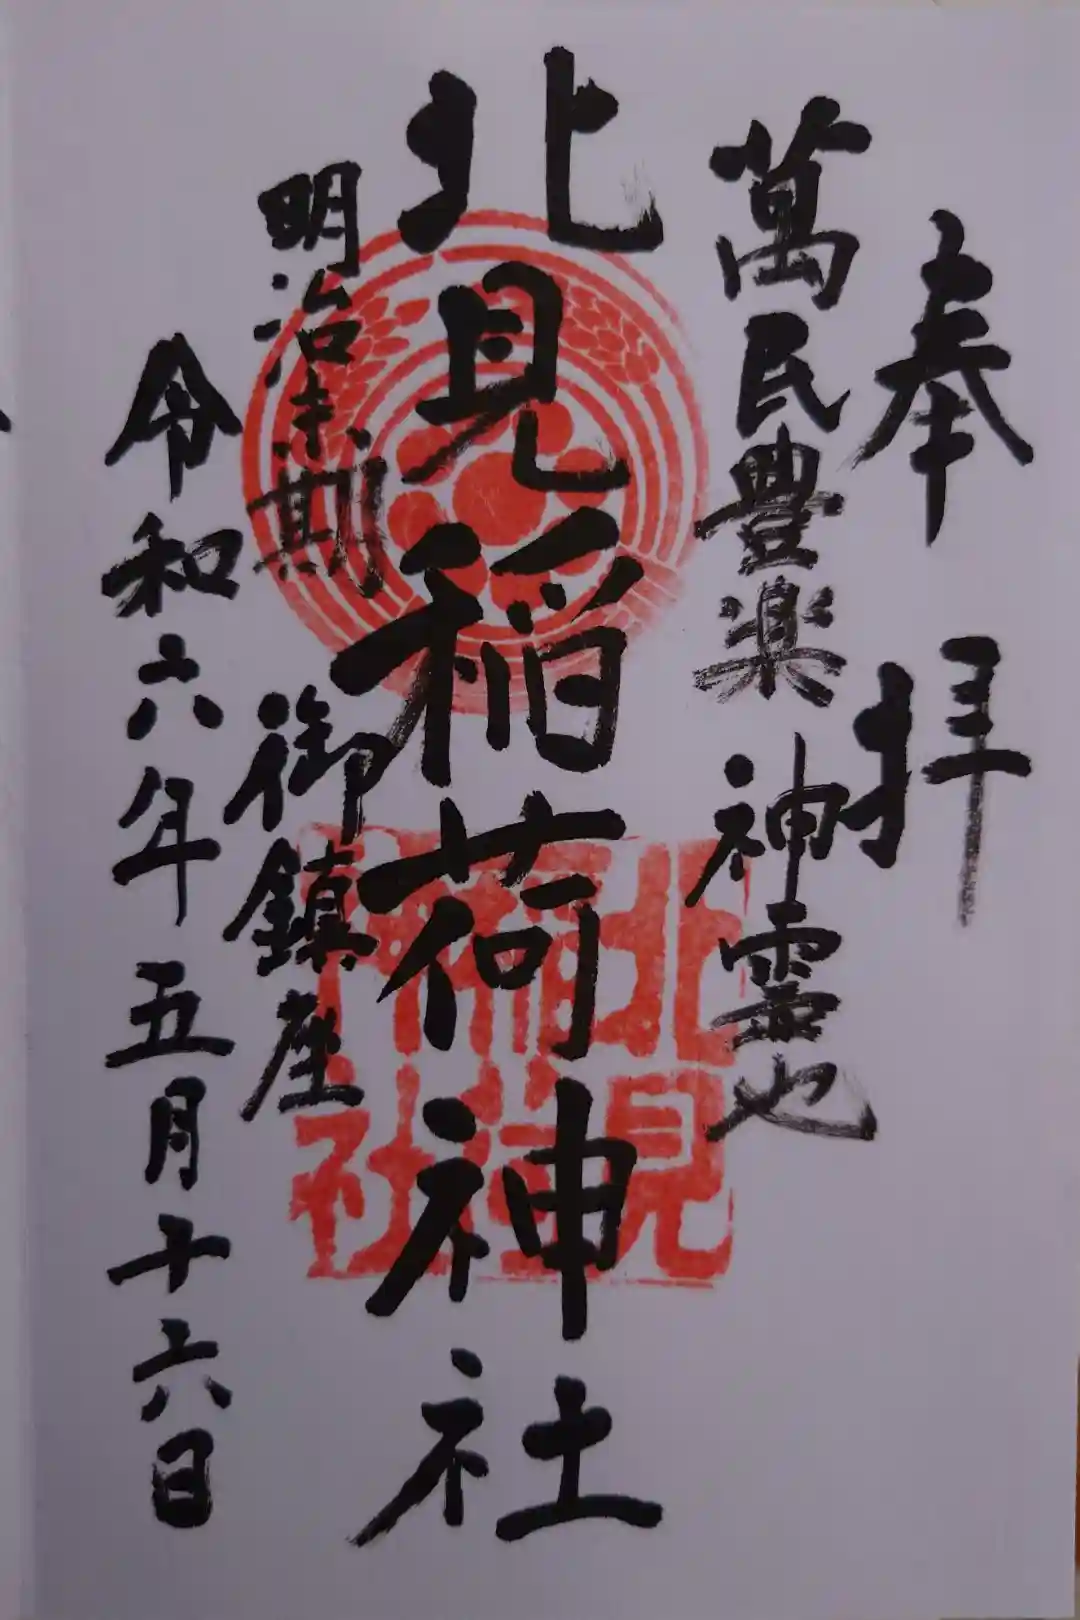 奉拝
萬民豊楽 神霊也
北見稲荷神社
明治末期 御鎮座
令和六年五月十六日
北見
稲荷
神社